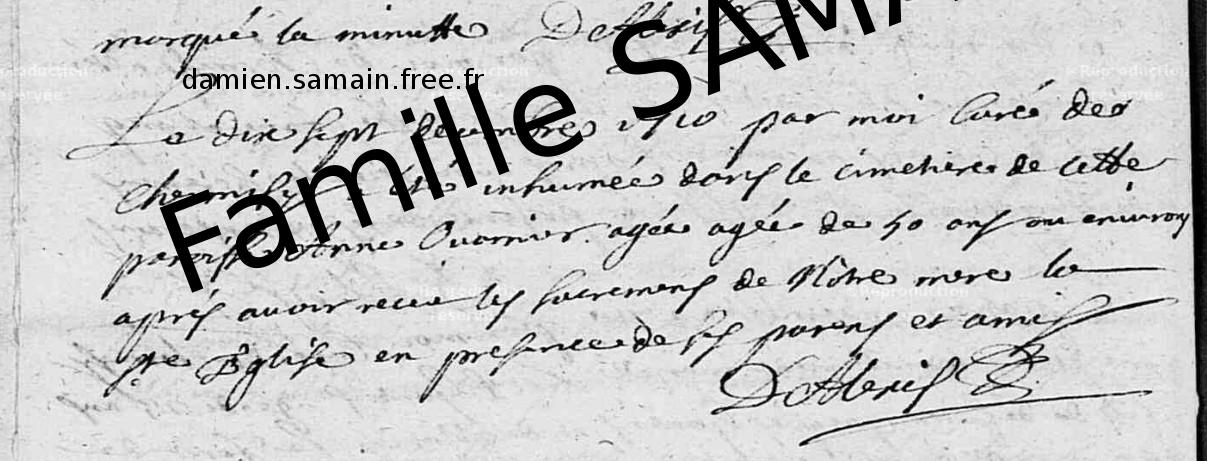 marqué la minutte
damien.samain.free.fr
Famille SAMA
Le dix sept decembre 1710 par moi Curé de
a été inhumée dans le cimetiere de cette
paroisse Anne agée agée de 50 ans ou environ
aprés avoir receu les sacremens de Nôtre mere la
ste Eglise en presence de ses parens et amis